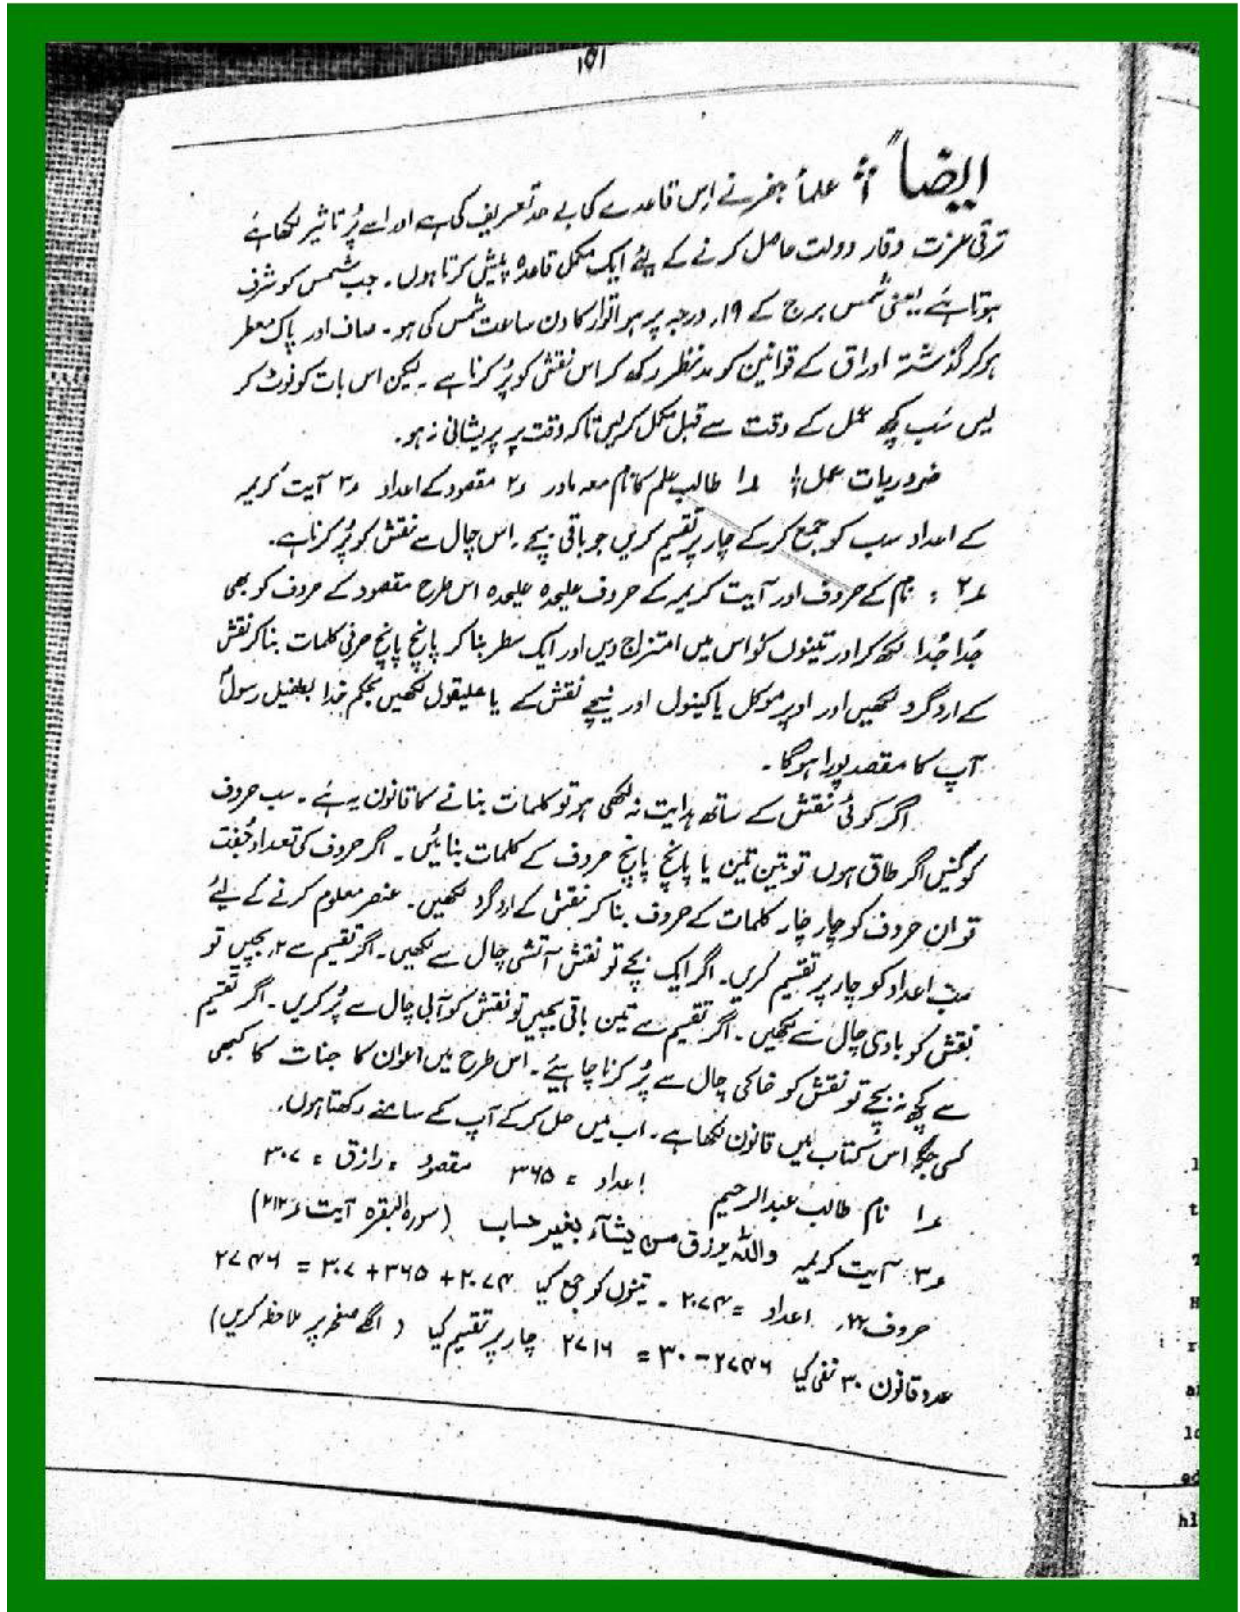 ۱۵۱
ایضاً : علمأ جفر نے اِس قاعدے کی بے حد تعریف کی ہے اور اسے پُر تاثیر لکھا ہے
ترقی عزت وقار دولت حاصل کرنے کے لئے ایک مکمل قاعدہ پیش کرتا ہوں۔ جب شمس کو شرف
ہوتا ہے یعنی شمس برج کے ۱۹, درجہ پر ہو اتوار کا دن ساعت شمس کی ہو۔ صاف اور پاک معطر
ہو کر گذشتہ اوراق کے قوانین کو مدنظر رکھ کر اس نقش کو پُر کرنا ہے۔ لیکن اس بات کو نوٹ کر
لیں سَب کچھ عمل کے وقت سے قبل مکمل کر لیں تاکہ وقت پر پریشانی نہ ہو۔
ضروریات عمل : ۱ طالب علم کا نام معہ مادر ۲ مقصود کے اعداد ۳ آیت کریمہ
کے اعداد سب کو جمع کر کے چار پر تقسیم کریں جو باقی بچے۔ اس چال سے نقش کو پُر کرنا ہے۔
۲ : نام کے حروف اور آیت کریمہ کے حروف علیحدہ علیحدہ اس طرح مقصود کے حروف کو بھی
جُدا جُدا لکھ کر اور تینوں کو اس میں امتزاج دیں اور ایک سطر بنا کر پانچ پانچ حرفی کلمات بنا کر نقش
کے اردگرد لکھیں اور اوپر موکل یا کینول اور نیچے نقش کے یا علیقول لکھیں بحکم خدا بطفیل رسولؐ
آپ کا مقصد پورا ہو گا۔
اگر کوئی نقش کے ساتھ ہدایت نہ لکھی ہو تو کلمات بنانے کا قانون یہ ہے۔ سب حروف
کو گنیں اگر طاق ہوں تو تین تین یا پانچ پانچ حروف کے کلمات بنائیں۔ اگر حروف کی تعداد جُفت
تو ان حروف کو چار چار کلمات کے حروف بنا کر نقش کے اردگرد لکھیں۔ عنصر معلوم کرنے کے لئے
سب اعداد کو چار پر تقسیم کریں۔ اگر ایک بچے تو نقش آتشی چال سے لکھیں۔ اگر تقسیم سے ۲, بچیں تو
نقش کو بادی چال سے لکھیں۔ اگر تقسیم سے تین باقی بچیں تو نقش کو آبی چال سے پُر کریں۔ اگر تقسیم
سے کچھ نہ بچے تو نقش کو خاکی چال سے پُر کرنا چاہیئے۔ اس طرح میں اعوان کا جنات کا کبھی
کسی جگہ اس کتاب میں قانون لکھا ہے۔ اب میں حل کر کے آپ کے سامنے رکھتا ہوں۔
۱ نام طالب عبدالرحیم اعداد = ۳۶۵ مقصود = رازق = ۳۰۸
۳ : آیت کریمہ واللہ یرزق من یشآء بغیر حساب (سورۃ البقرہ آیت ۲۱۲)
حروف ۲۲, اعداد = ۲۰۷۴ - تینوں کو جمع کیا ۲۰۷۴ + ۳۶۵ + ۳۰۷ = ۲۷۴۶
عدد قانون ۳۰ نفی کیا ۲۷۴۶ - ۳۰ = ۲۷۱۶ چار پر تقسیم کیا ( اگلے صفحہ پر ملاحظہ کریں)